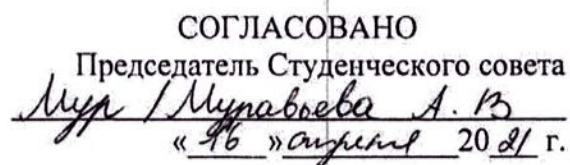 СОГЛАСОВАНО
Председатель Студенческого совета
Мур / Муравьева А. В
« 16 » апреля 20 21 г.